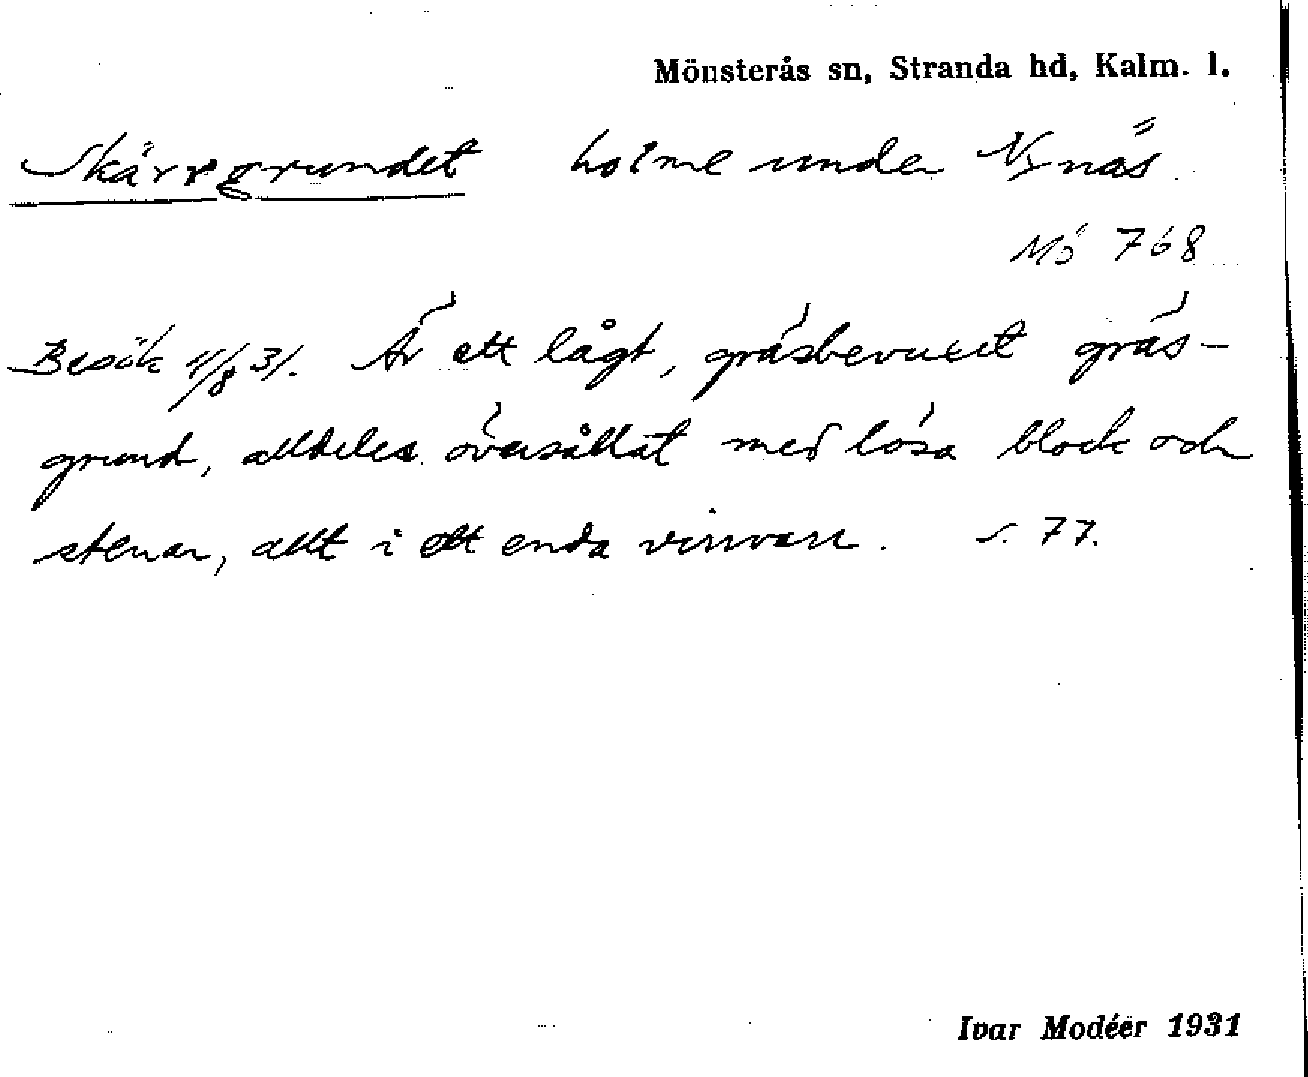 Mönsterås sn, Stranda hd, Kalm. l.
Skärrgrundet holme under Nynäs.
Mö 768
Besök 4/8 31. Är ett lågt, gräsbevuxet gräs-
grund, alldeles översållat med lösa block och
stenar, allt i ett enda virrvarr. s. 77.
Ivar Modéer 1931